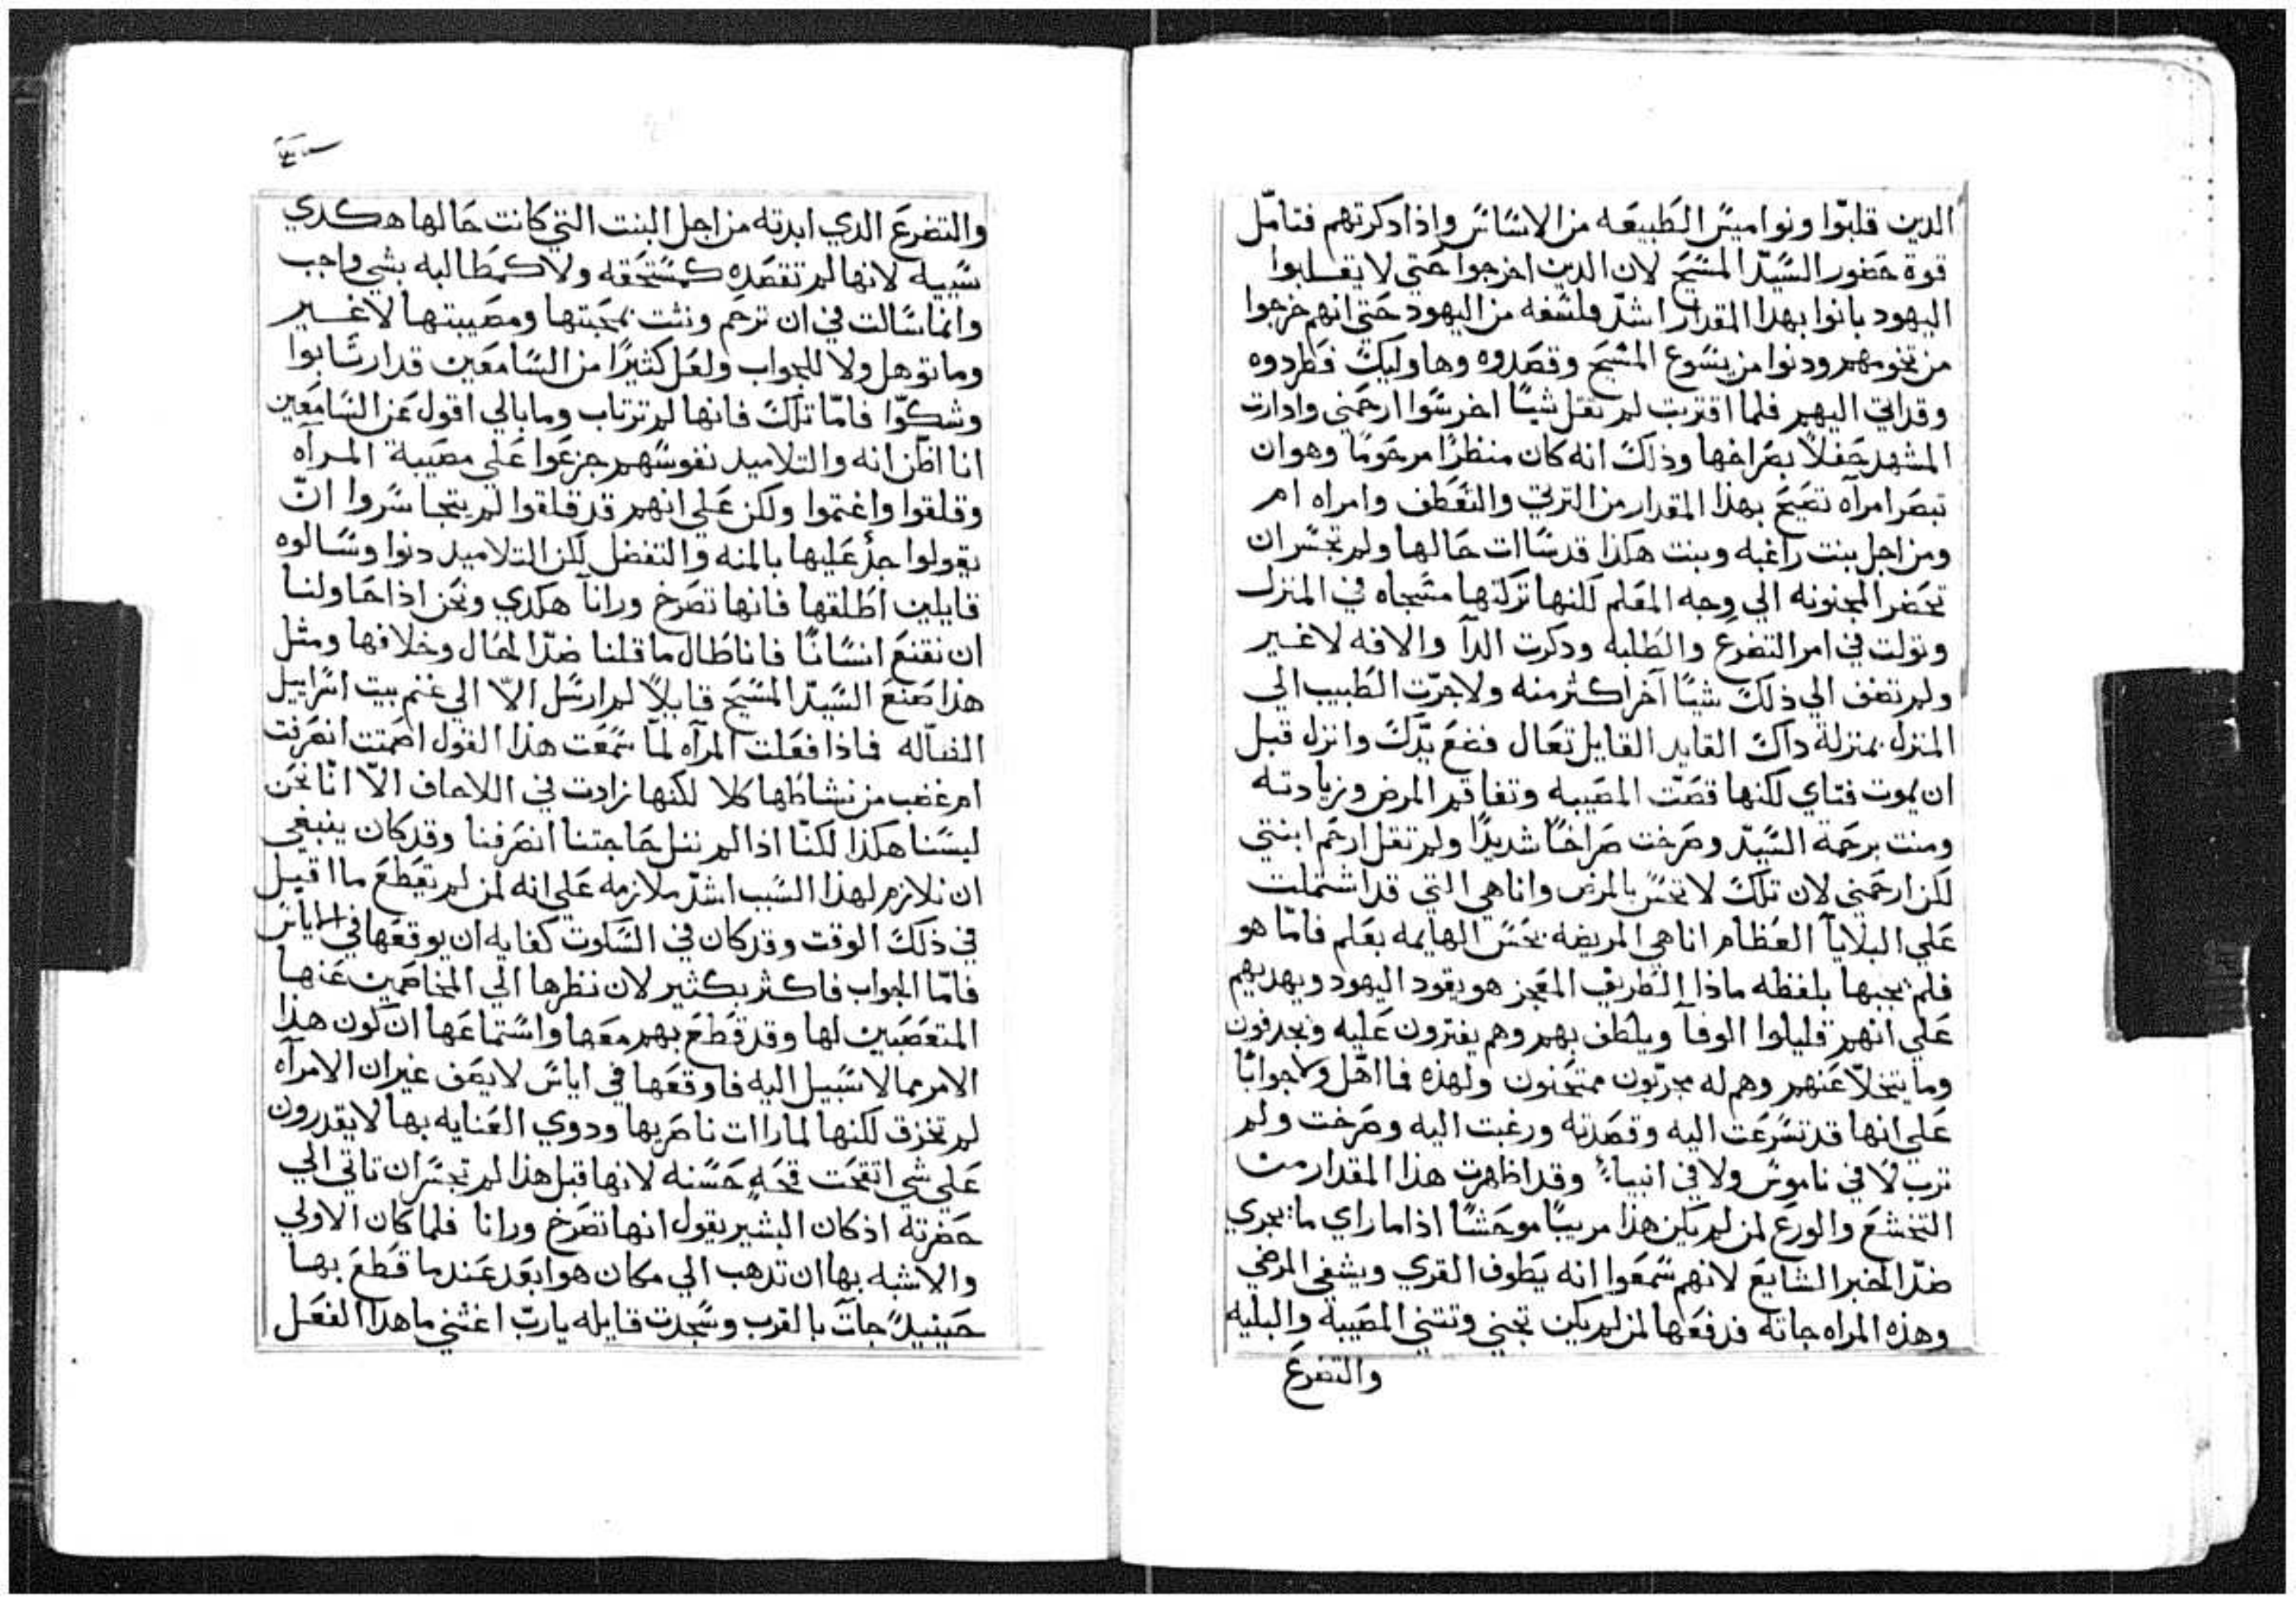 الدين قلبّوا ونواميس الطبيعه من الاساس واذا دكرتهم فتامّل
قوة حضور السّيّد المسّيح لان الدين اخرجوا حتي لا يقلبوا
اليهود بانوا بهدا المقدار اشدّ فلسفه من اليهود حتي انهم خرجوا
من تخومهم ودنوا من يسوع المسيح وقصدوه وهاوليك فطردوه
وقد اتي اليهم فلما اقتربت لم تقل شيًا اخر سّوا ارحمني وادارت
المشهد حفلاً بصراخها وذلك انه كان منظرًا مرحومًا وهو ان
تبصر امرآه تصيح بهذا المقدار من الترتي والتعطف وامراه ام
ومن اجل بنت راغبه وبنت هكذا قد سّاات حالها ولم تجسّر ان
تحضر المجنونه الي وجه المعلم لكنها تركتها مسّجاه في المنزل
وتولت في امر التضرع والطلبه ودكرت الدآ والافه لا غير
ولم تضف الي ذلك شيًا آخر اكثر منه ولا جرّت الطبيب الي
المنزل بمنزلة داك القايد القايل تعال فضع يّدك وانزل قبل
ان يموت فتاي لكنها قصّت المصيبه وتفاقم المرض وزيادته
ومنت برحمة السّيّد وصرخت صراخًا شديدًا ولم تقل ارحم ابنتي
لكن ارحمني لان تلك لا تحس بالمرض وانا هي التي قد اشتملت
علي البلايآ العظام انا هي المريضه بحس الهايمه بعلم فامّا هو
فلم يجبها بلفظه ماذا الطريف المعجز هو يقود اليهود ويهديهم
علي انهم قليلوا الوفآ ويلطف بهم وهم يفترون عليه ويجدفون
وما يتخلّا عنهم وهم له مجربّون ممتحنون ولهذه فما اهّل ولا جوابًا
علي انها قد تسّرعت اليه وقصدته ورغبت اليه وصرخت ولم
ترب لا في ناموس ولا في انبياء وقد اظهرت هذا المقدار من
التخشع والورع لمن لم يكن هذا مريبًا موحشًا اذا ما راي ما يجري
ضدّ الخبر الشايع لانهم سّمعوا انه يطوف القري ويشفي المرضي
وهذه المراه جاته فدفعها لمن لم يكن تحني وتثني المصيبة والبليه
والتضرع
والتضرع الدي ابدته من اجل البنت التي كانت حالها هكدي
سّييه لانها لم تقصده كمسّتحقه ولا كمطالبه بشي واجب
وانما سّالت في ان ترحم ونثت بمحبتها ومصيبتها لا غير
وما توهل ولا للجواب ولعل كثيرًا من السّامعين قد ارتابوا
وشكّوا فامّا تلك فانها لم ترتاب وما بالي اقول عن السّامعين
انا اظن انه والتلاميد نفوسّهم جزعوا علي مصيبة المرآه
وقلقوا واغتموا ولكن علي انهم قد قلقوا لم يتجاسّروا انّ
يقولوا جدْ عليها بالمنه والتفضل لكن التلاميد دنوا وسّالوه
قايلين اطلقها فانها تصرخ ورانآ هكدي ونحن اذا حاولنا
ان نقنع انسّانًا فانا طال ما قلنا ضدّ المحال وخلافها ومثل
هذا صنع السّيّد المسّيح قايلاً لم ارسّل الاّ الي غنم بيت اسّراييل
الضآله فماذا فعلت المرآه لمّا سّمعت هذا القول اصمتت انصرفت
ام غضب من نشاطها كلا لكنها زادت في اللاحاف الاّ انّا نحن
لسّنا هكذا لكنّا اذا لم ننل حاجتنا انصرفنا وقد كان ينبغي
ان نلازم لهذا السّبب اشدّ ملازمه علي انه لمن لم تقطع ما اقيل
في ذلك الوقت وقد كان في السّكوت كفايه ان يوقعها في الاياس
فامّا الجواب فاكثر بكثير لان نظرها الي المخاصمين عنها
المتعصبين لها وقد قطع بهم معها واسّتماعها ان كون هذا
الامر مما لا سّبيل اليه فاوقعها في اياس لا يصف غير ان الامرآه
لم تخزق لكنها لما راات ناصريها ودوي العنايه بها لا يقدرون
علي شي اتقحت قحةٍ حسّنه لانها قبل هذا لم تجسّر ان تاتي الي
حضرته اذ كان البشير يقول انها تصرخ ورانا فلما كان الاولي
والاشبه بها ان تدهب الي مكان هو ابعد عندما قطع بها
حينيدً جآت بالقرب وسّجدت قايله يا ربّ اغثني ما هدا الفعل